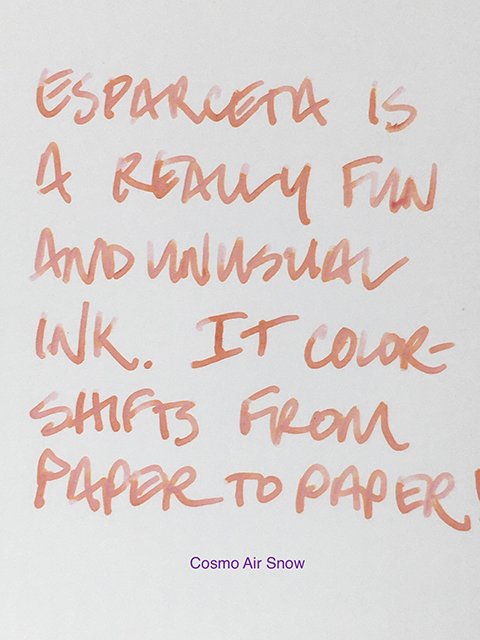 ESPARCETA IS
A REALLY FUN
AND UNUSUAL
INK. IT COLOR-
SHIFTS FROM
PAPER TO PAPER!
Cosmo Air Snow